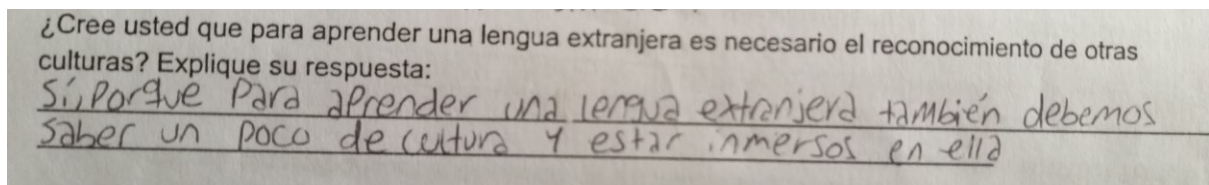 ¿Cree usted que para aprender una lengua extranjera es necesario el reconocimiento de otras
culturas? Explique su respuesta:
Sí, Porque Para aPrender una lengua extranjera también debemos
saber un poco de cultura y estar inmersos en ella